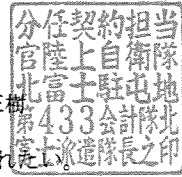 分任契約担当
官陸上自衛隊
北富士駐屯地
樹
第433会計隊北
富士派遣隊長之印
れたい。